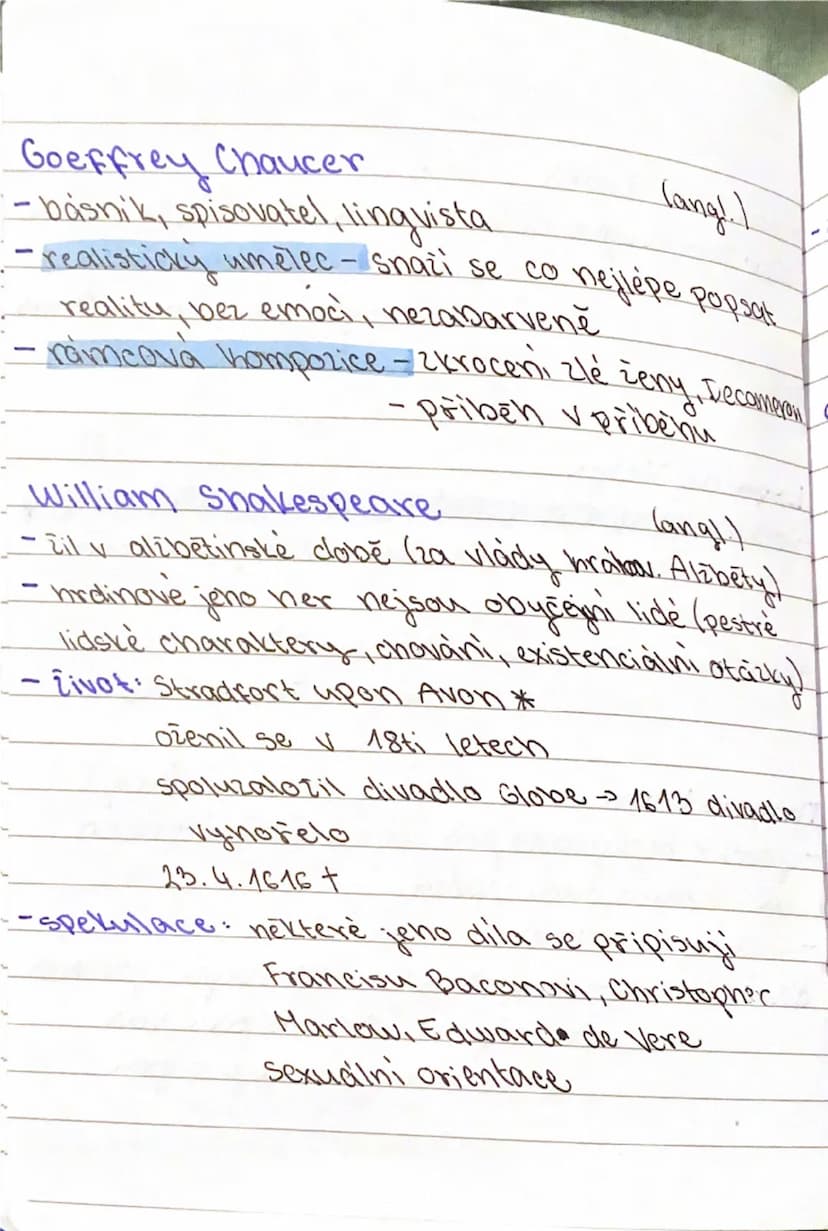 Goeffrey Chaucer
(angl.)
- básník, spisovatel, lingvista
- realistický umělec - snaží se co nejlépe popsat
realitu, bez emocí, nezabarveně
- rámcová kompozice - zkrocení zlé ženy, Decameron
- příběh v příběhu
William Shakespeare
(angl.)
- žil v alžbětinské době (za vlády královn. Alžběty)
- hrdinové jeho her nejsou obyčejní lidé (pestré
lidské charaktery, chování, existenciální otázky)
- život: Stradfort upon Avon *
oženil se v 18ti letech
spoluzaložil divadlo Globe → 1613 divadlo
vyhořelo
23.4.1616 †
- spekulace: některé jeho díla se připisují
Francisu Baconovi, Christopher
Marlow, Edward de Vere
sexuální orientace